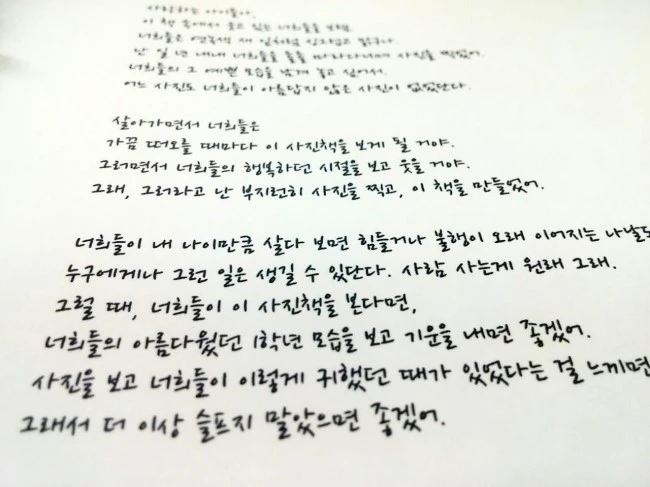 사랑하는 아이들아,
이 책 속에서 웃고 있는 너희들을 보렴.
너희들은 연녹색 새 잎처럼 싱그럽고 맑구나.
난 일 년 내내 너희들을 졸졸 따라다니며 사진을 찍었어.
너희들의 그 예쁜 모습을 남겨 놓고 싶어서.
어느 사진도 너희들이 아름답지 않은 사진이 없었단다.
살아가면서 너희들은
가끔 떠오를 때마다 이 사진책을 보게 될 거야.
그러면서 너희들의 행복하던 시절을 보고 웃을 거야.
그래, 그러라고 난 부지런히 사진을 찍고, 이 책을 만들었어.
너희들이 내 나이만큼 살다 보면 힘들거나 불행이 오래 이어지는 나날도
누구에게나 그런 일은 생길 수 있단다. 사람 사는게 원래 그래.
그럴 때, 너희들이 이 사진책을 본다면,
너희들의 아름다웠던 1학년 모습을 보고 기운을 내면 좋겠어.
사진을 보고 너희들이 이렇게 귀했던 때가 있었다는 걸 느끼면
그래서 더 이상 슬프지 말았으면 좋겠어.